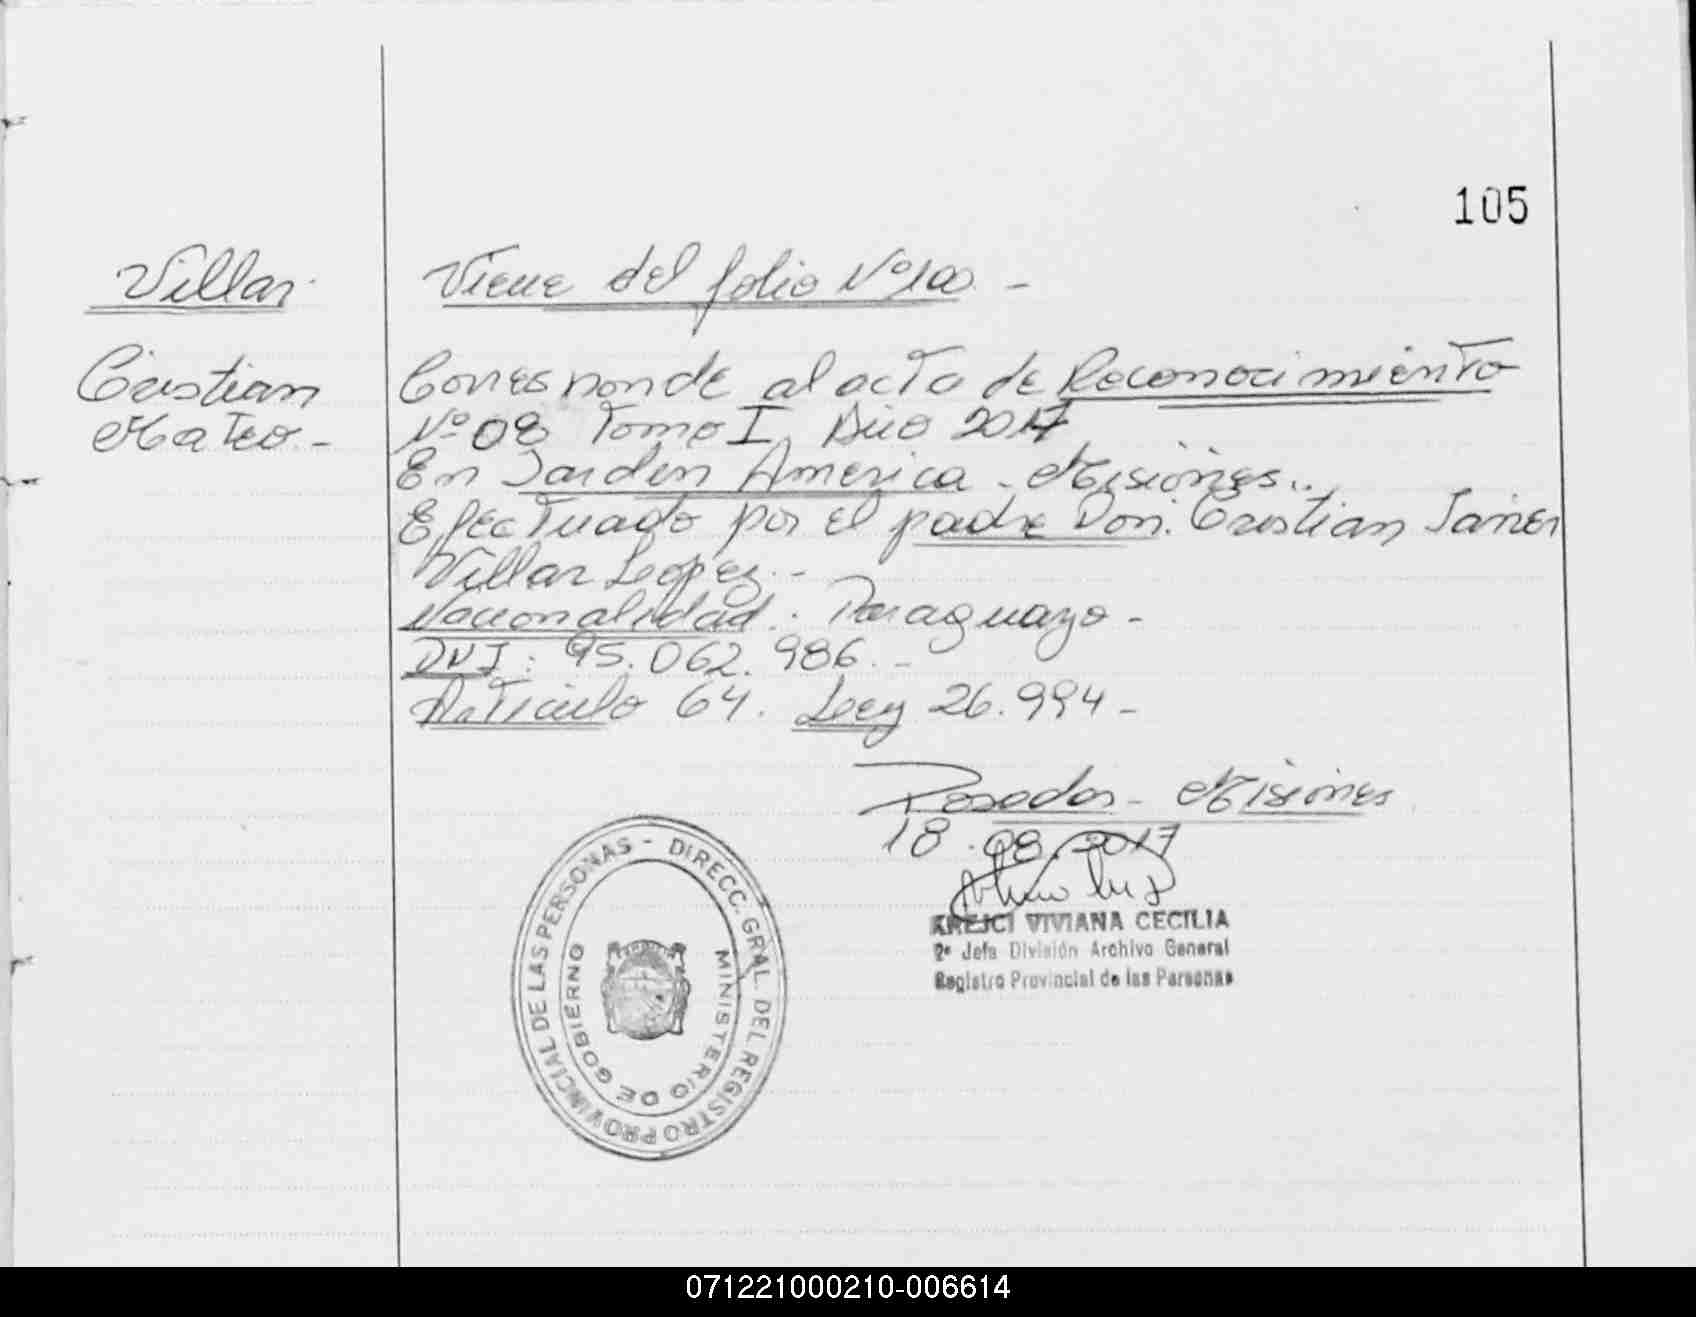 105
Villar
Viene del folio Nº 100. -
Cristian
Mateo. -
Corresponde al acta de Reconocimiento
Nº 08 Tomo I, Año 2017
En Jardin America - Misiones..
Efectuado por el padre Don. Cristian Javier
Villar Lopez. -
Nacionalidad: Paraguayo -
DNI: 95.062.986. -
Articulo 64. Ley 26.994 -
Posadas - Misiones
18.08.2017
KREJCI VIVIANA CECILIA
2º Jefa División Archivo General
Registro Provincial de las Personas
DIRECC. GRAL. DEL REGISTRO PROVINCIAL DE LAS PERSONAS -
MINISTERIO DE GOBIERNO
071221000210-006614